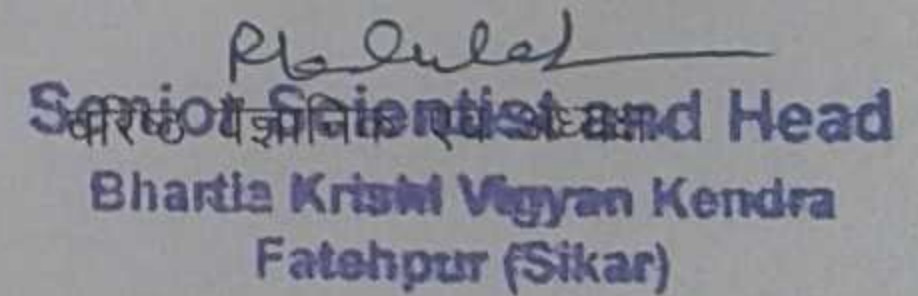 Senior Scientist and Head
वरिष्ठ वैज्ञानिक एवं अध्यक्ष
Bhartia Krishi Vigyan Kendra
Fatehpur (Sikar)